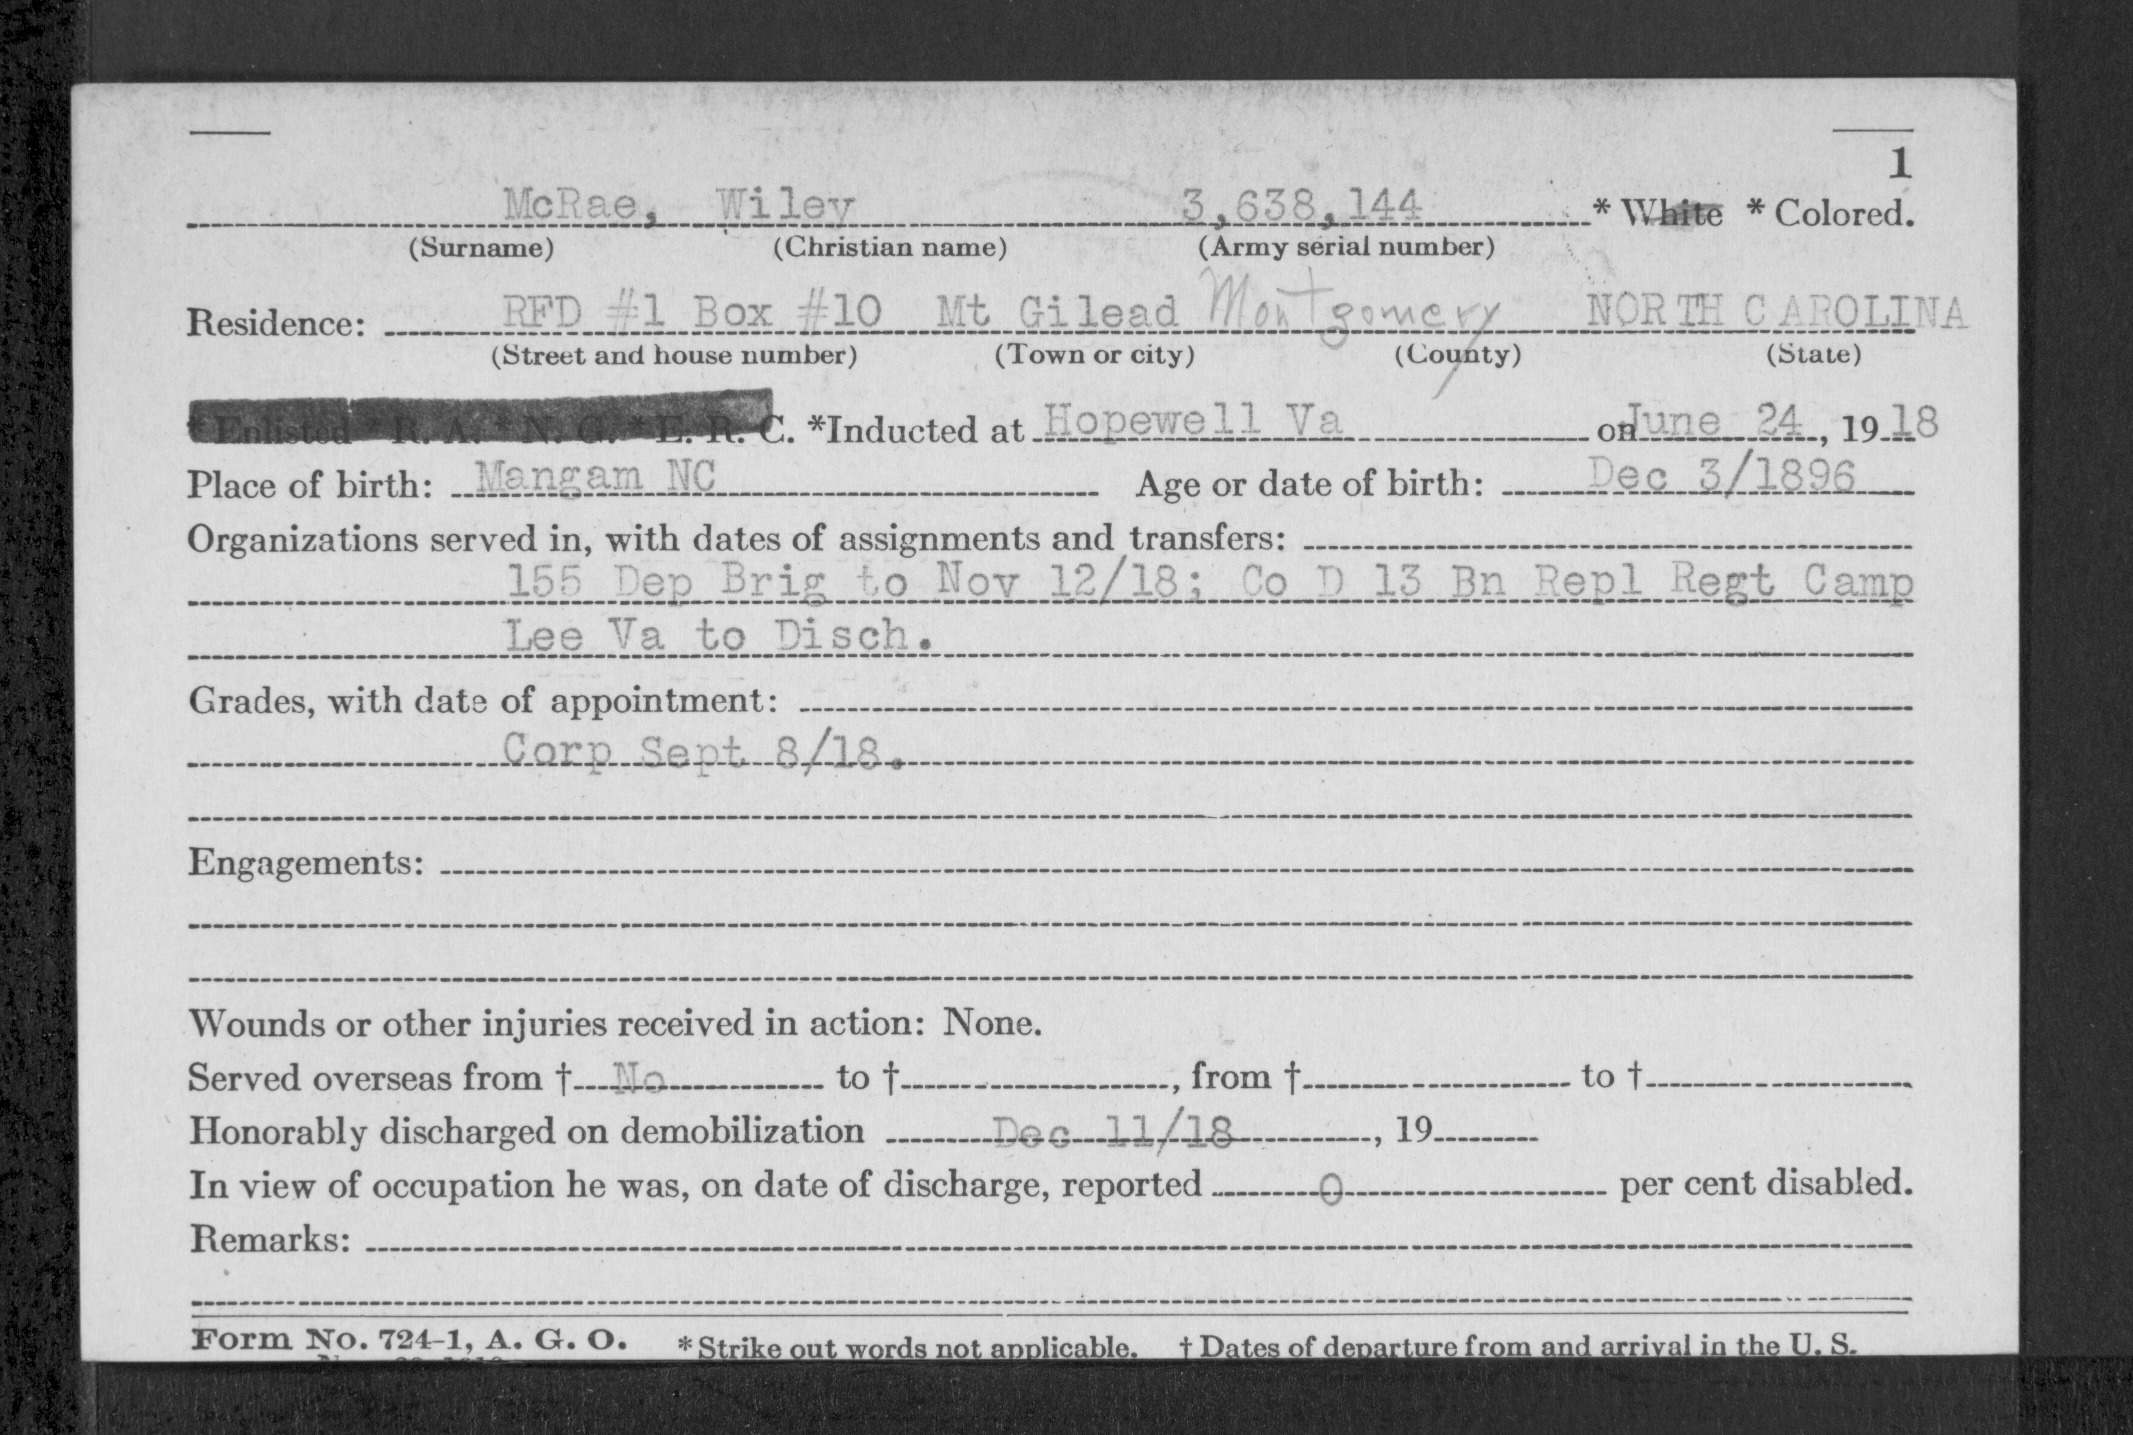 1
McRae, Wiley 3,638,144 * White * Colored.
(Surname) (Christian name) (Army serial number)
Residence: RFD #1 Box #10 Mt Gilead Montgomery NORTH CAROLINA
(Street and house number) (Town or city) (County) (State)
* Enlisted * R. A. * N. G. * E. R. C. *Inducted at Hopewell Va on June 24, 1918
Place of birth: Mangam NC Age or date of birth: Dec 3/1896
Organizations served in, with dates of assignments and transfers:
155 Dep Brig to Nov 12/18; Co D 13 Bn Repl Regt Camp
Lee Va to Disch.
Grades, with date of appointment:
Corp Sept 8/18.
Engagements:
Wounds or other injuries received in action: None.
Served overseas from † No to †, from † to †
Honorably discharged on demobilization Dec 11/18, 19
In view of occupation he was, on date of discharge, reported 0 per cent disabled.
Remarks:
Form No. 724-1, A. G. O. * Strike out words not applicable. † Dates of departure from and arrival in the U. S.